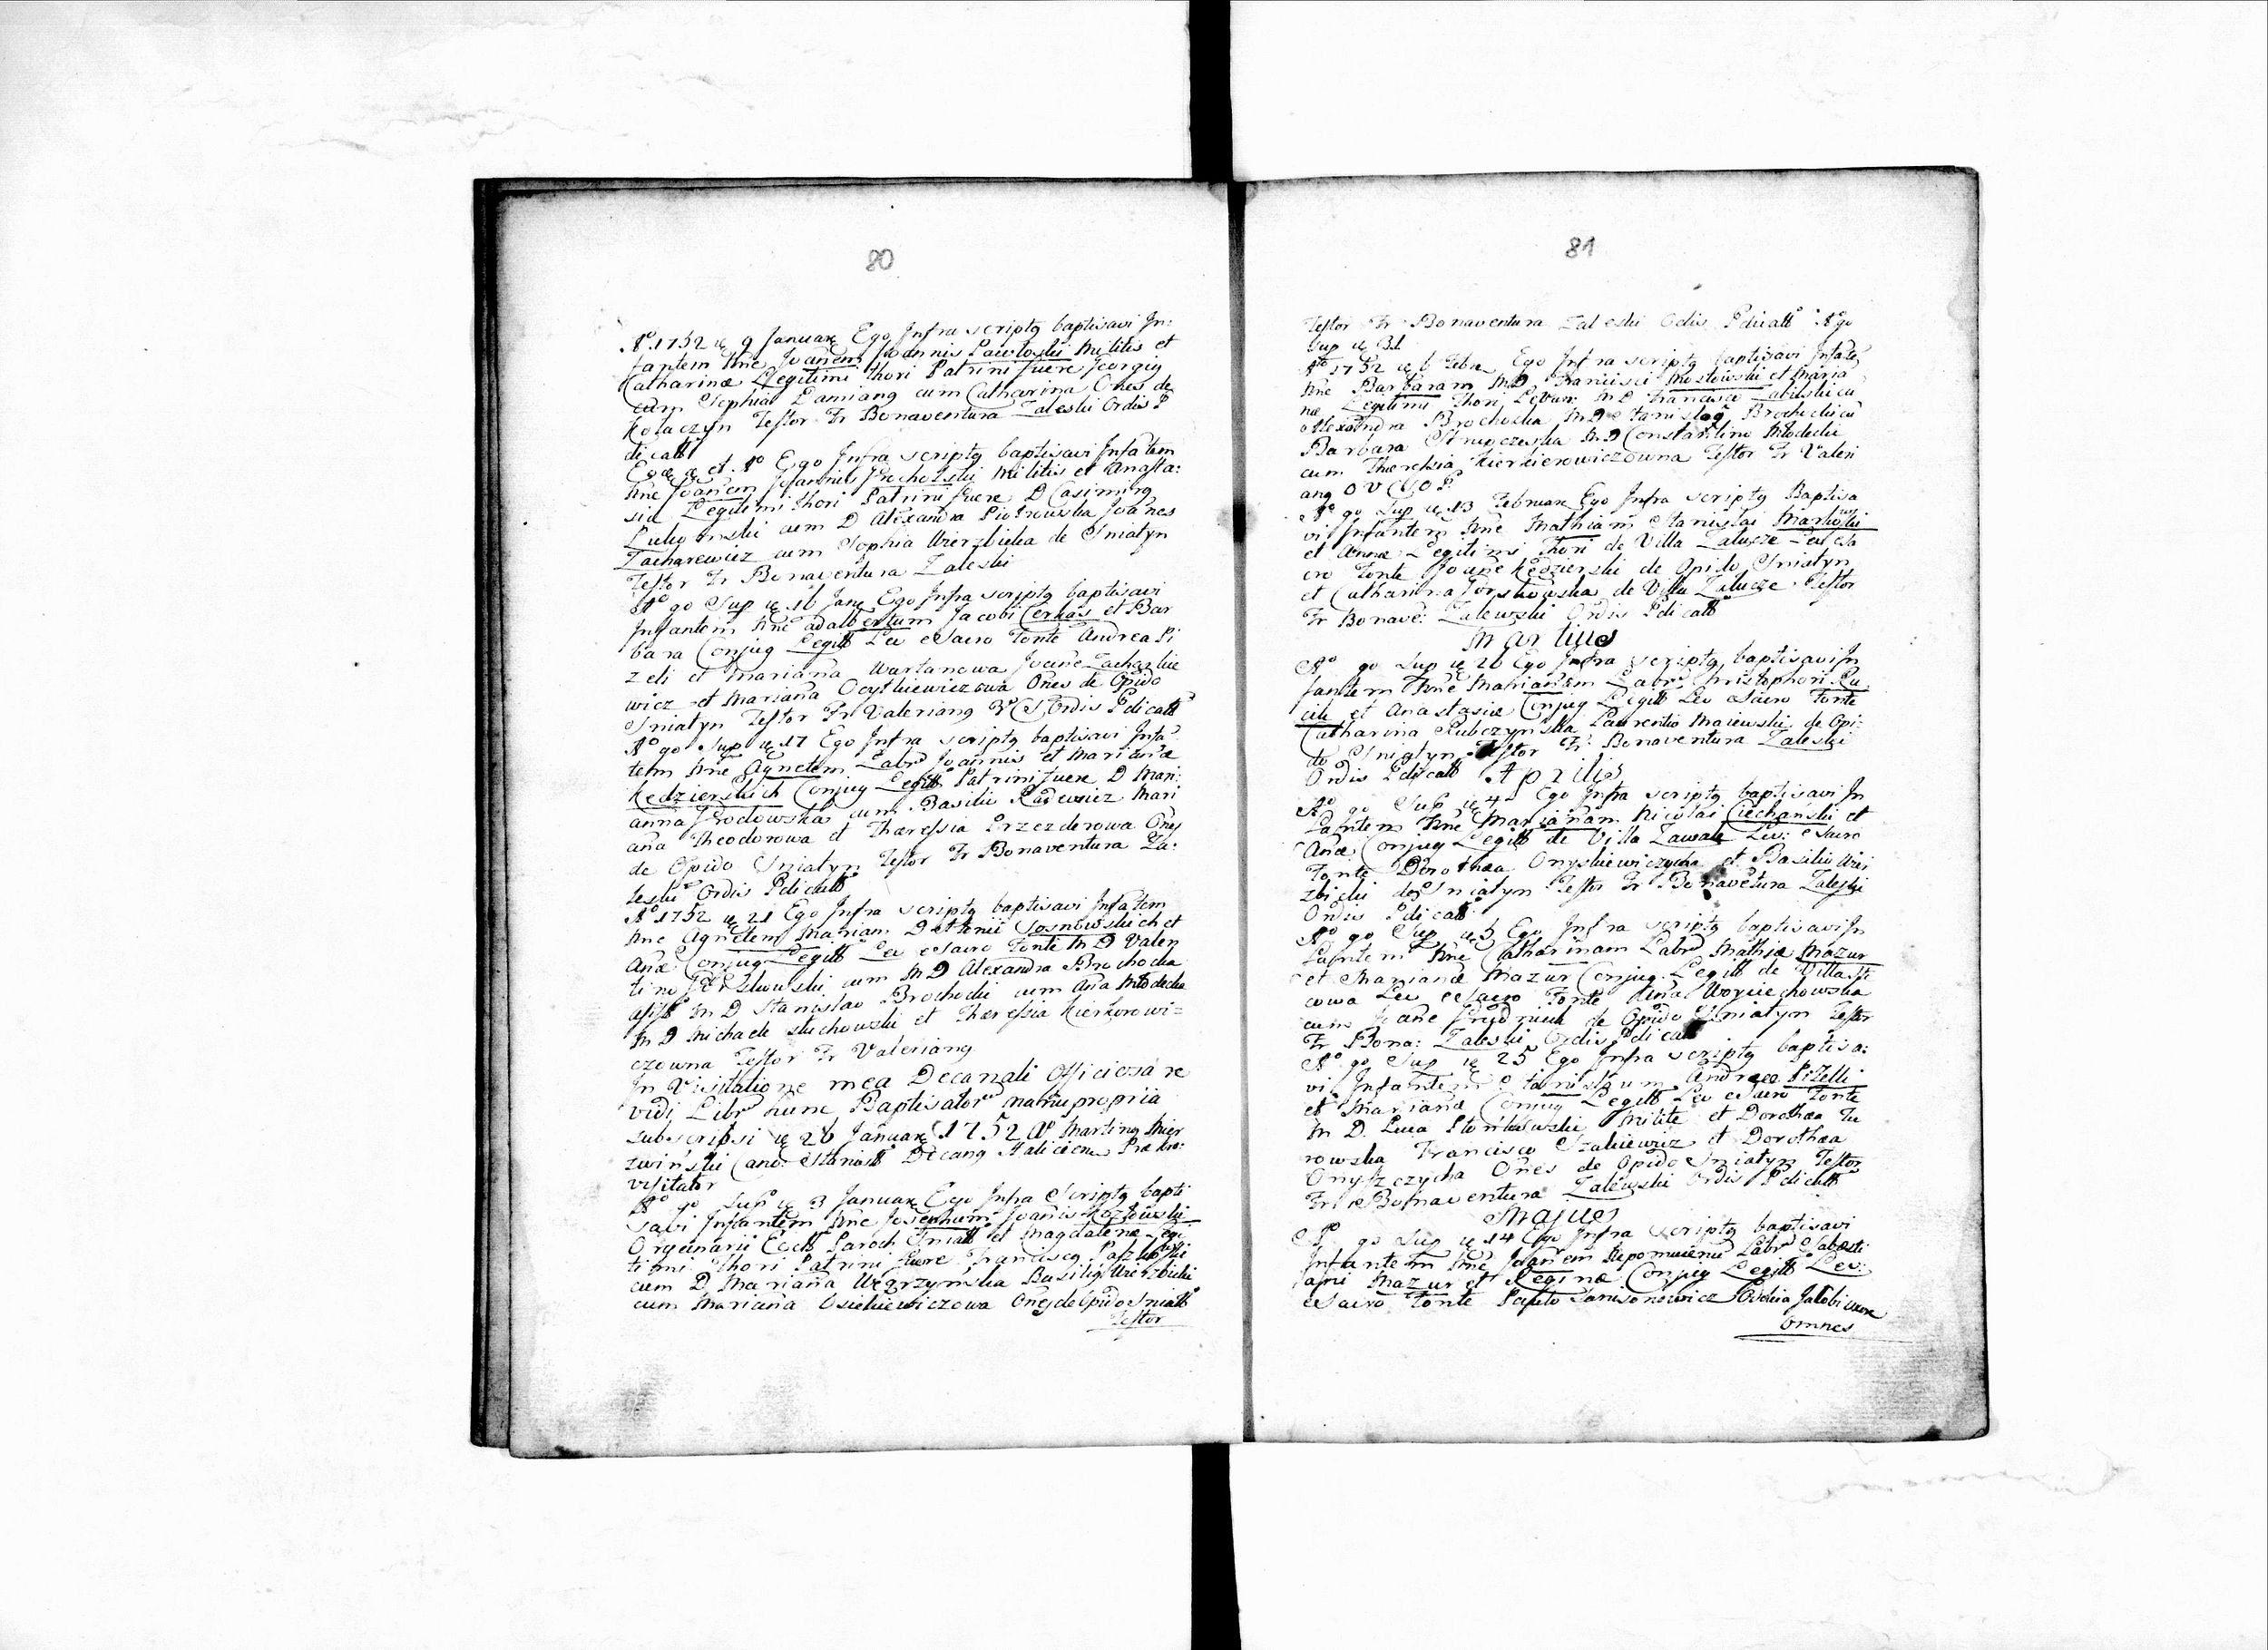 80
Aº 1752 9 Januar Ego Infra scriptq baptisavi In:
fantem Nne Joanem Joannis Pawłoski Militis et
Catharinæ Legitimi thori Patrini fuere Georgig
cum Sophia Lamiang cum Catharina Ones de
Kołaczyn Testor Fr Bonaventura Zaleski Ordis P
dicatt
et Aº Ego Infra scriptq baptisavi Infatem
Nne Joanem Joannis Militis et Anasta:
siæ Legitimi thori Patrini fuere D Casimirg
cum D Alexandra Piotrowska Joanes
Zacharewicz cum Sophia Wierzbicka de Sniatyn
Testor Fr Bonaventura Zaleski
Aº go Sup 16 Jang Ego Infra scriptq baptisavi
Infantem Nne adalbertum Jacobi Cerkas et Bar
bara Conjug Legitt Lev e Sacro Fonte Andrea Pi
zeli et Mariana Wartanowa Joane Zachazkie
wicz et Mariana Ocytkiewiczowa Ones de Opido
Sniatyn Testor Fr Valeriang Ordis Pdicatt
Aº go Sup 17 Ego Infra scriptq baptisavi Infa
tem Nne Agnetem Labr Joannis et Marianæ
Kedzierskich Conjug Legitt Patrini fuere D Mari:
anna Grodowska cum Basilii Radewicz Mari
ana Theodorowa et Theressia Przezderowa Ones
de Opido Sniatyn Testor Fr Bonaventura Za:
leski Ordis Pdicatt
Aº 1752 21 Ego Infra scriptq baptisavi Infatem
Nne Agnetem Mariam D Sosnowskich et
Anæ Conjug Legitt Lev e Sacro Fonte M D Valen
tino cum M D Alexandra Brochocka
assist M D Stanislao Brochocki cum Ana Młodecka
M D Michaele Stuchowski et Theressia Kierkorowi=
czowna Testor Fr Valeriang
In Visitatione mea Decanali Officiosa re
vidi Libr hunc Baptisator manu propria
subscripsi 26 Januar 1752 Aº Marting Mier
zwiński Cano: Stanist Decang Haliciens
visitator
Aº go Sup 3 Januar Ego Infra Scriptq bapti
savi Infantem Nne Josephum Joanis Kozłowski
Organarii Eccl Paroch Sniatt et Magdalenæ Legi
timi thori Patrini fuere Franciscg
cum D Mariana Węgrzymska Basilig Wierzbicki
cum Mariana Osiekiewiczowa Ones de Opido Sniatt
Testor
81
Testor Fr Bonaventura Zaleski Odis Pdicatt Aº go
Sup 31
Aº 1752 6 Febr Ego Infra scriptq baptisavi Infate
Nne Barbaram M D Francisci Mostowski et Maria
næ Legitimi Thori Levar M D Francisco Zabuski cu
Alexandra Brochocka M D Stanislag Brochocki cu
Barbara M D Constantino Młodecki
cum Theressia Kierkierowiczowna Testor Fr Valeri
ang O V C S O P
Aº go Sup 13 Februar Ego Infra scriptq Baptisa
vi Infantem Nne Mathiam Stanislai
et Annæ Legitimi Thori de Villa Załucze Lev e Sa
cro Fonte Joane Kędzierski de Opido Sniatyn
et Catharina Gorskowska de Villa Załucze Testor
Fr Bonave: Zalewski Ordis Pdicatt
Martius
Aº go Sup 26 Ego Infra scriptq baptisavi In
fantem Nne Marianam Labr Christophori Ku
cik et Anastasiæ Conjug Legitt Lev e Sacro Fonte
Catharina Rubczynska Laurentio Maiewski de Opi:
do Sniatyn Testor Fr Bonaventura Zaleski
Ordis Pdicatt Aprilis
Aº go Sup 4 Ego Infra scriptq baptisavi In
fantem Nne Marianam Nicolai Ciechański et
Anæ Conjug Legitt de Villa Zawale Lev: e Sacro
Fonte Dorothea Onyskiewiczycha et Basilio Wier
zbicki de Sniatyn Testor Fr Bonavetura Zaleski
Ordis Pdicatt
Aº go Sup 5 Ego Infra scriptq baptisavi In
fantem Nne Catharinam Labr Mathiæ Mazur
et Marianæ Mazur Conjug Legitt de Villa
cowa Lev e Sacro Fonte Ana Woyciechowska
cum Joane de Opido Sniatyn Testor
Fr Bona: Zaleski Ordis Pdicatt
Aº go Sup 25 Ego Infra scriptq baptisa:
vi Infantem Stanislaum Andreæ Pizelli
et Marianæ Conjug Legitt Lev e Sacro Fonte
M D. Luca Milite et Dorothea Tu
rowska Francisco Szakiewicz et Dorothea
Onyszczycha Ones de Opido Sniatyn Testor
Fr Bonaventura Zalewski Ordis Pdicatt
Majus
Aº go Sup 14 Ego Infra Scriptq baptisavi
Infantem Nne Joanem Nepomucenu Labr Sabesti
ani Mazur et Reginæ Conjug Legitt Lev:
e Sacro Fonte Samsonowicz Jacobi uxore
Omnes